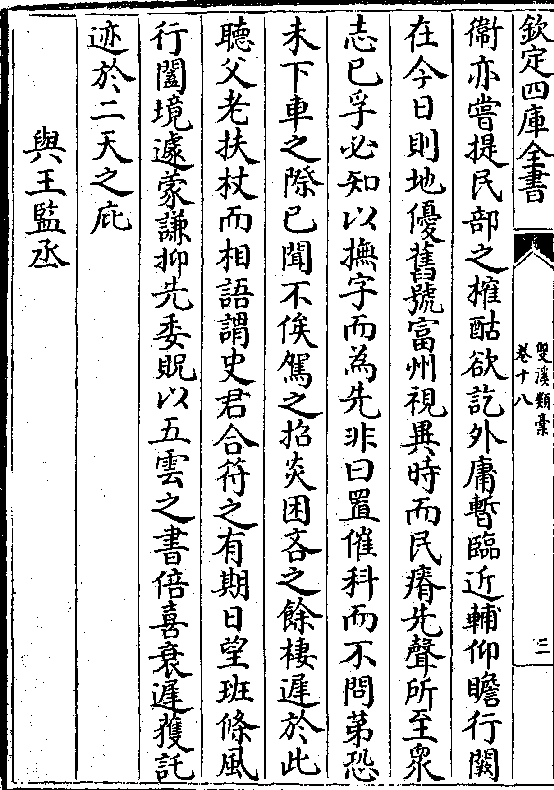 欽定四庫全書
雙溪類藁
卷十八
三
衞亦嘗提民部之搉酤欲訖外庸暫臨近輔仰瞻行闕
在今日則地優舊號富州視異時而民瘠先聲所至衆
志已孚必知以撫字而為先非曰置催科而不問第恐
未下車之際已聞不俟駕之招炎困吝之餘棲遲於此
聽父老扶杖而相語謂史君合符之有期日望班條風
行闔境遽蒙謙抑先委貺以五雲之書倍喜衰遲獲託
迹於二天之庇
與王監丞